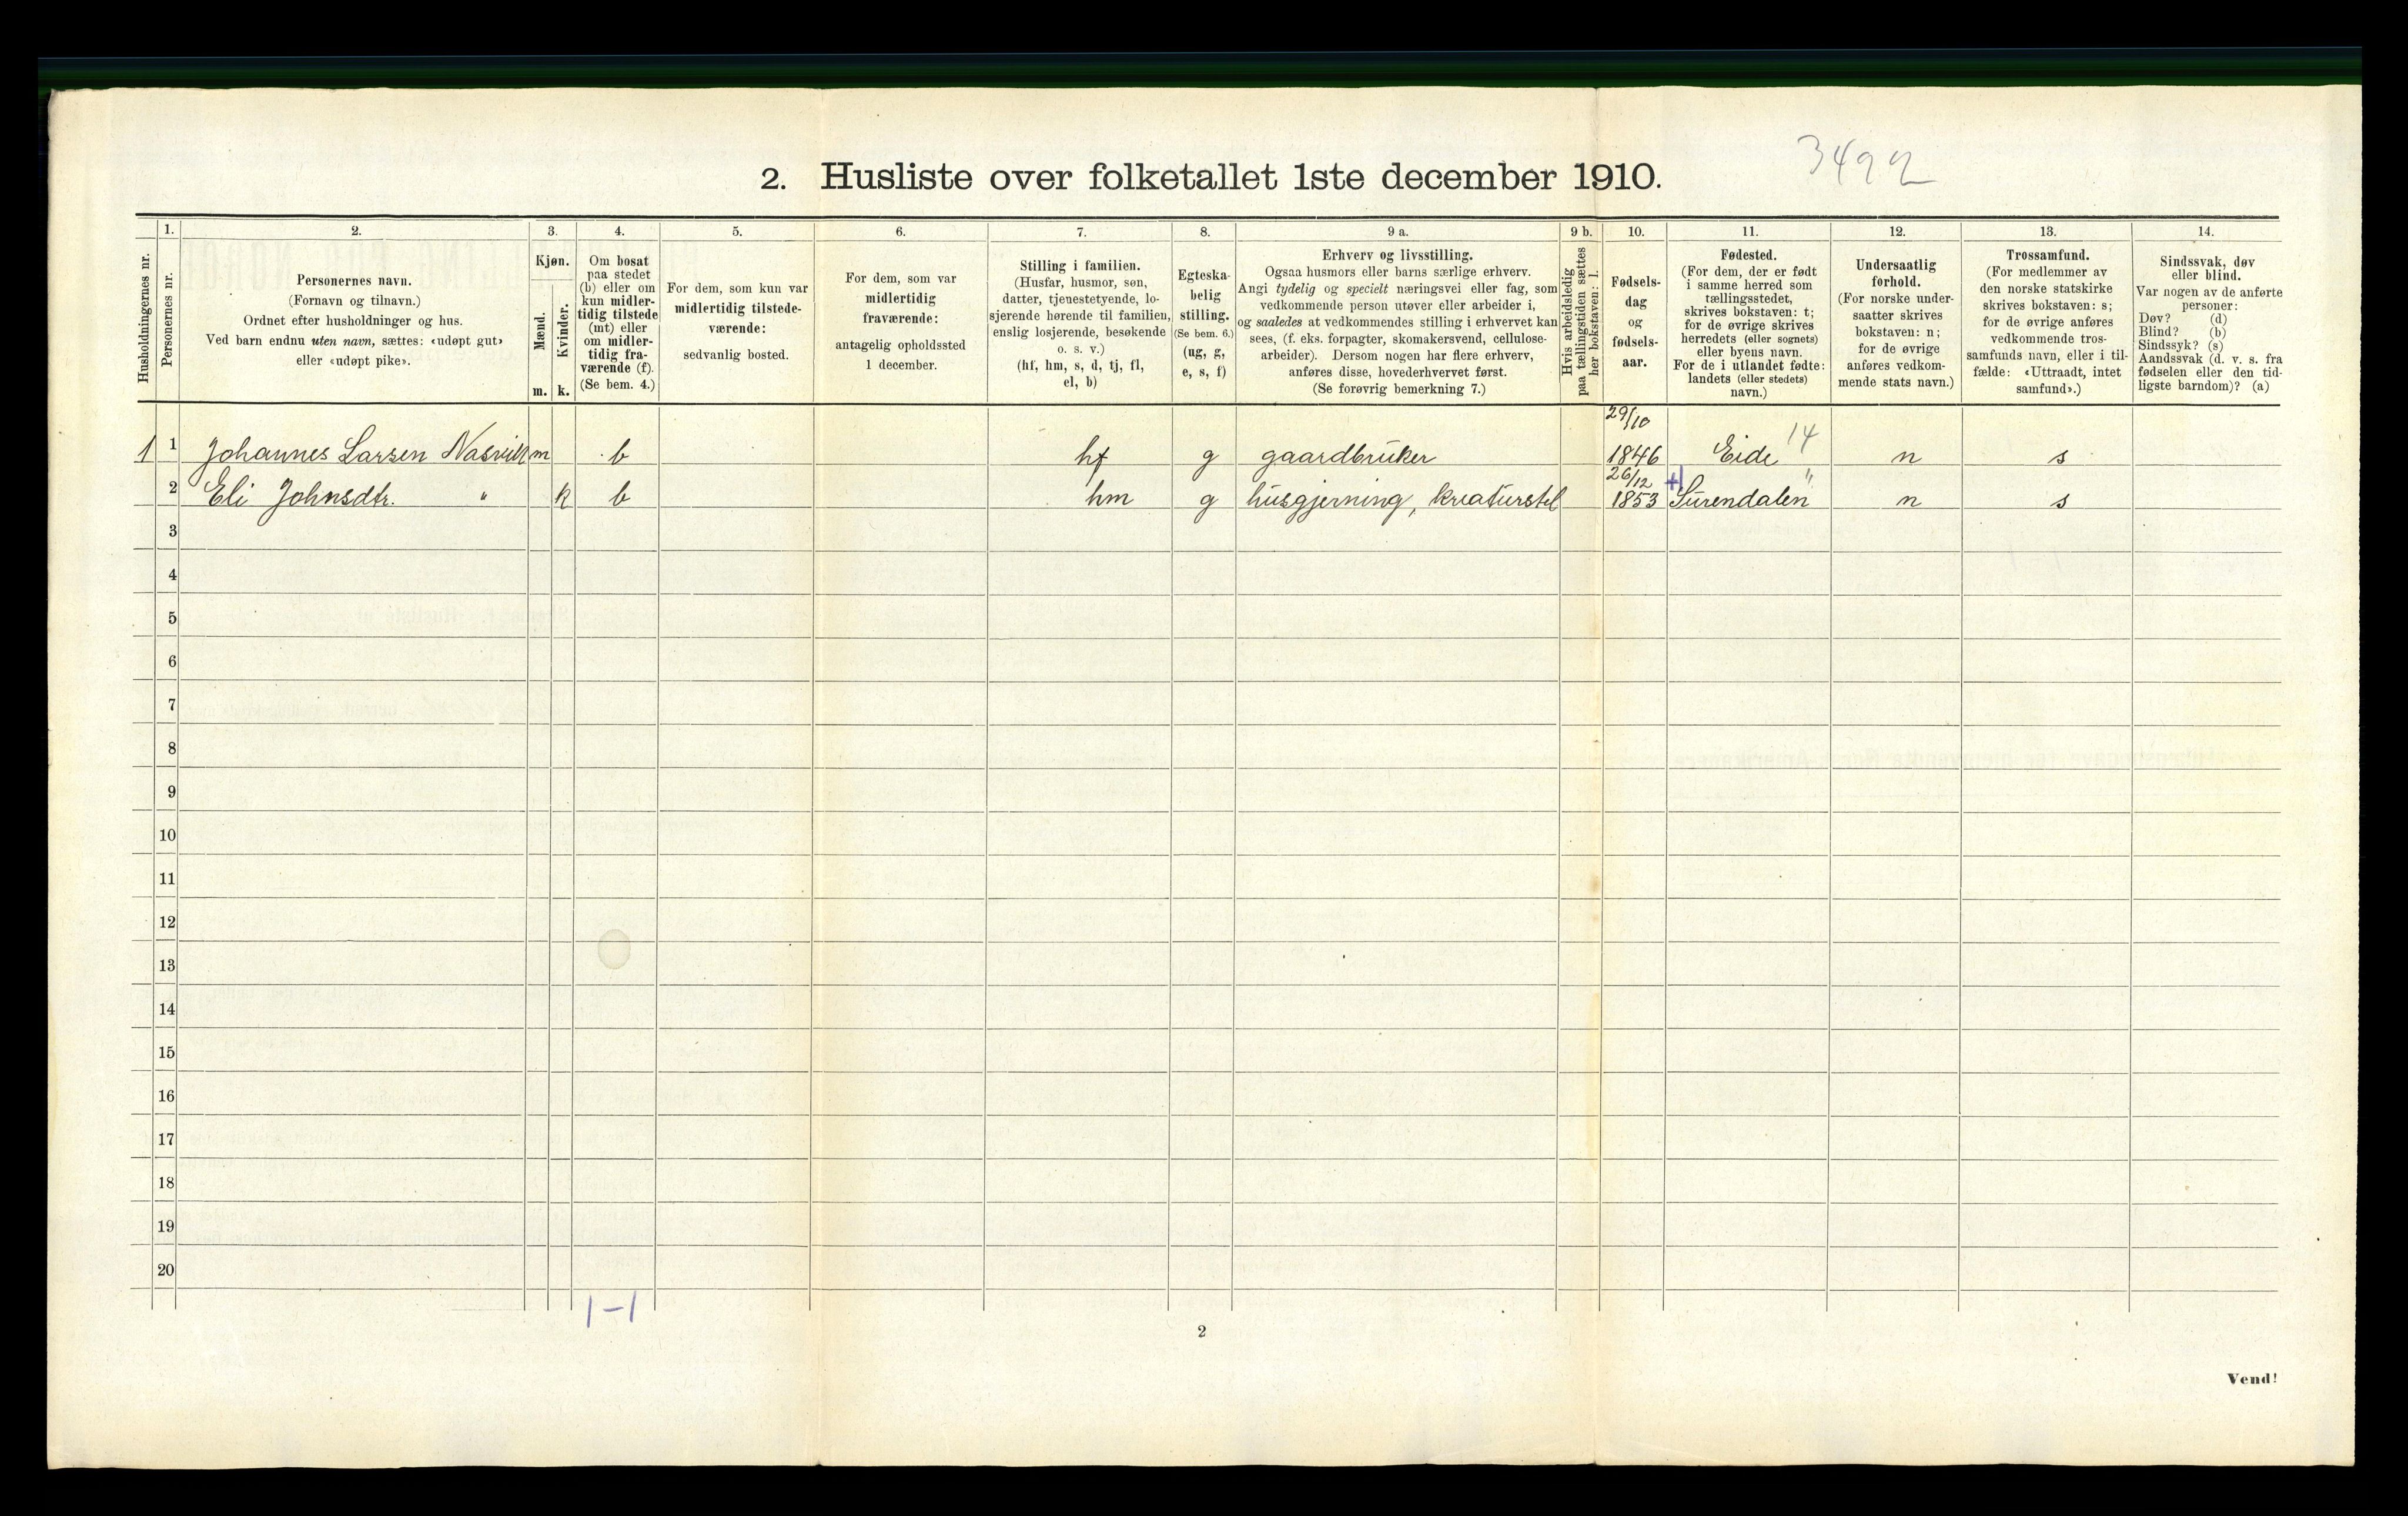 3492
2. Husliste over folketallet 1ste december 1910.
Husholdningernes nr.
1.
Personernes nr.
2.
Personernes navn.
(Fornavn og tilnavn.)
Ordnet efter husholdninger og hus.
Ved barn endnu uten navn, sættes: «udøpt gut»
eller «udøpt pike».
3.
Kjøn.
Mænd.
m.
Kvinder.
k.
4.
Om bosat
paa stedet
(b) eller om
kun midler-
tidig tilstede
(mt) eller
om midler-
tidig fra-
værende (f).
(Se bem. 4.)
5.
For dem, som kun var
midlertidig tilstede-
værende:
sedvanlig bosted.
6.
For dem, som var
midlertidig
fraværende:
antagelig opholdssted
1 december.
7.
Stilling i familien.
(Husfar, husmor, søn,
datter, tjenestetyende, lo-
sjerende hørende til familien,
enslig losjerende, besøkende
o. s. v.)
(hf, hm, s, d, tj, fl,
el, b)
8.
Egteska-
belig
stilling.
(Se bem. 6.)
(ug, g,
e, s, f)
9 a.
Erhverv og livsstilling.
Ogsaa husmors eller barns særlige erhverv.
Angi tydelig og specielt næringsvei eller fag, som
vedkommende person utøver eller arbeider i,
og saaledes at vedkommendes stilling i erhvervet kan
sees, (f. eks. forpagter, skomakersvend, cellulose-
arbeider). Dersom nogen har flere erhverv,
anføres disse, hovederhvervet først.
(Se forøvrig bemerkning 7.)
9 b.
Hvis arbeidsledig
paa tællingstiden sættes
her bokstaven: l.
10.
Fødsels-
dag
og
fødsels-
aar.
11.
Fødested.
(For dem, der er født
i samme herred som
tællingsstedet,
skrives bokstaven: t;
for de øvrige skrives
herredets (eller sognets)
eller byens navn.
For de i utlandet fødte:
landets (eller stedets)
navn.)
12.
Undersaatlig
forhold.
(For norske under-
saatter skrives
bokstaven: n;
for de øvrige
anføres vedkom-
mende stats navn.)
13.
Trossamfund.
(For medlemmer av
den norske statskirke
skrives bokstaven: s;
for de øvrige anføres
vedkommende tros-
samfunds navn, eller i til-
fælde: «Uttraadt, intet
samfund».)
14.
Sindssvak, døv
eller blind.
Var nogen av de anførte
personer:
Døv? (d)
Blind? (b)
Sindssyk? (s)
Aandssvak (d. v. s. fra
fødselen eller den tid-
ligste barndom)? (a)
1 1 Johannes Larsen Nasvik m b hf g gaardbruker 29/10 1846 Eide 14 n s
2 Eli Johnsdtr. " k b hm g husgjerning, kreaturstel 26/12 1853 Surendalen " n s
3
4
5
6
7
8
9
10
11
12
13
14
15
16
17
18
19
20
1-1
2
Vend!